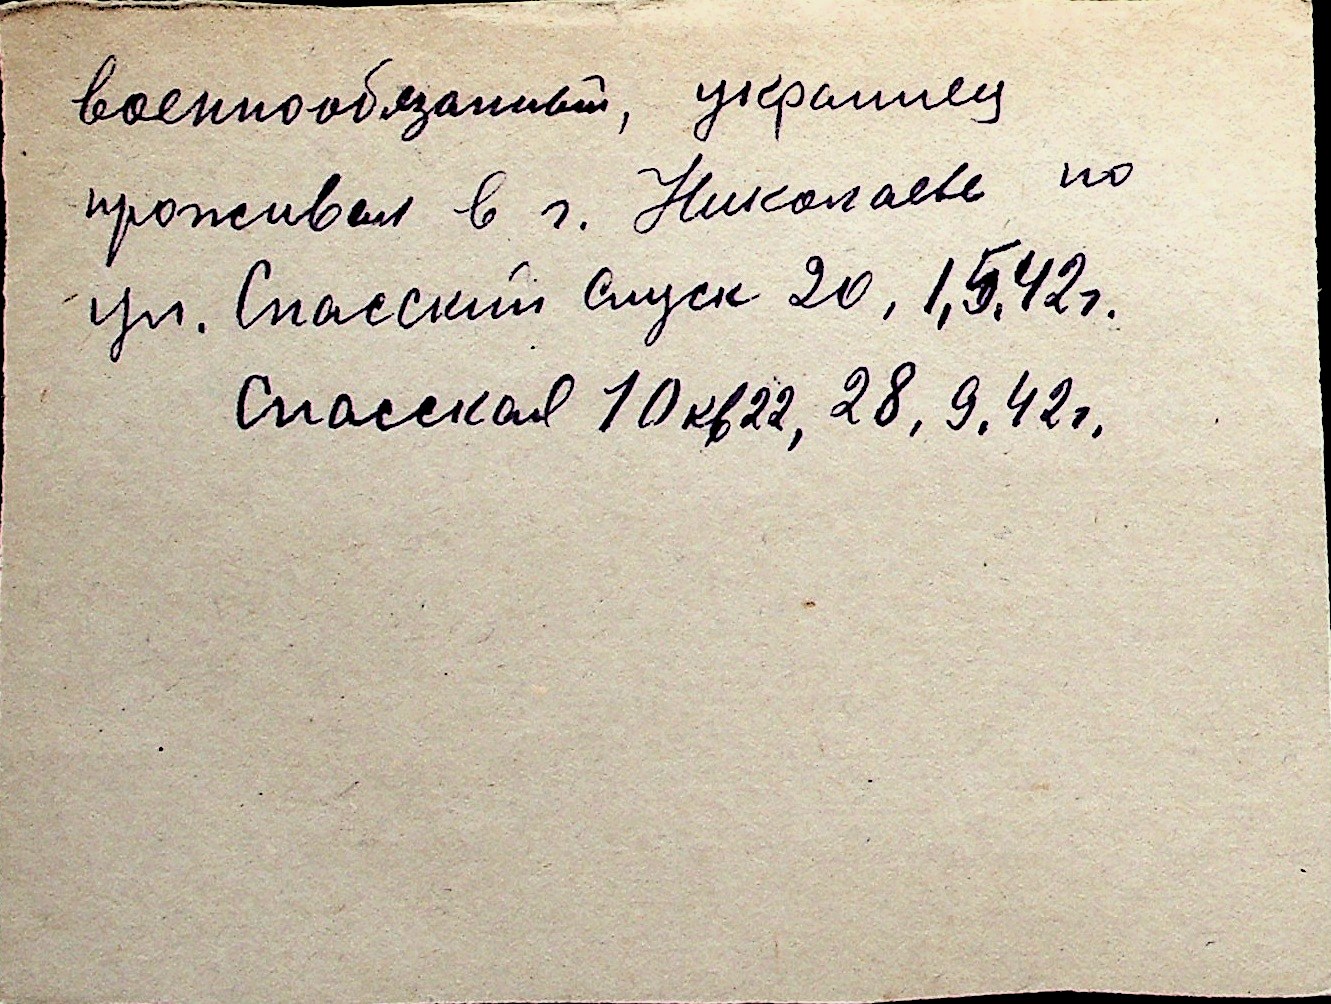 военнообязанный, украинец
проживал в г. Николаеве по
ул. Спасский спуск 20, 1,5.42г.
Спасская 10 кв22, 28, 9.42г.